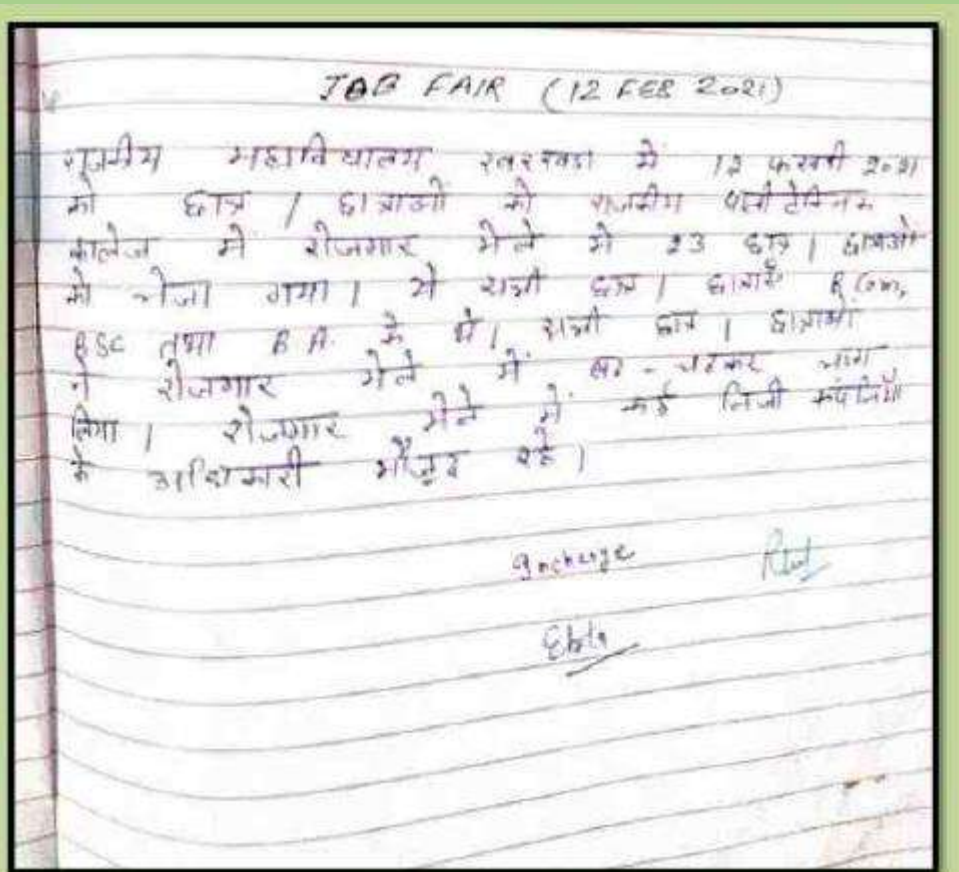 JOB FAIR (12 FEB 2021)
राजकीय महाविद्यालय खरखडा में 12 फरवरी 2021
को छात्र / छात्राओं को राजकीय पॉलीटेक्निक
कालेज में रोजगार मेले में 23 छात्र / छात्राओं
को भेजा गया । ये सभी छात्र / छात्राएँ B.Com,
BSC तथा B.A. के थे । सभी छात्र / छात्राओं
ने रोजगार मेले में बढ - चढकर भाग
लिया । रोजगार मेले में कई निजी कंपनियों
के अधिकारी मौजूद रहे ।
Incharge